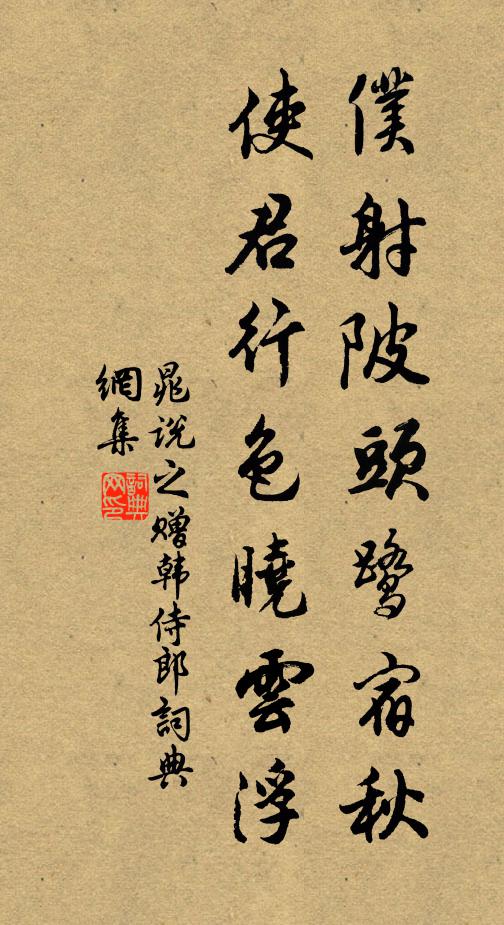 僕射陂頭鷺宿秋
使君行色曉雲浮
晁說之赠韩侍郎詞典
網集
詞典
网印